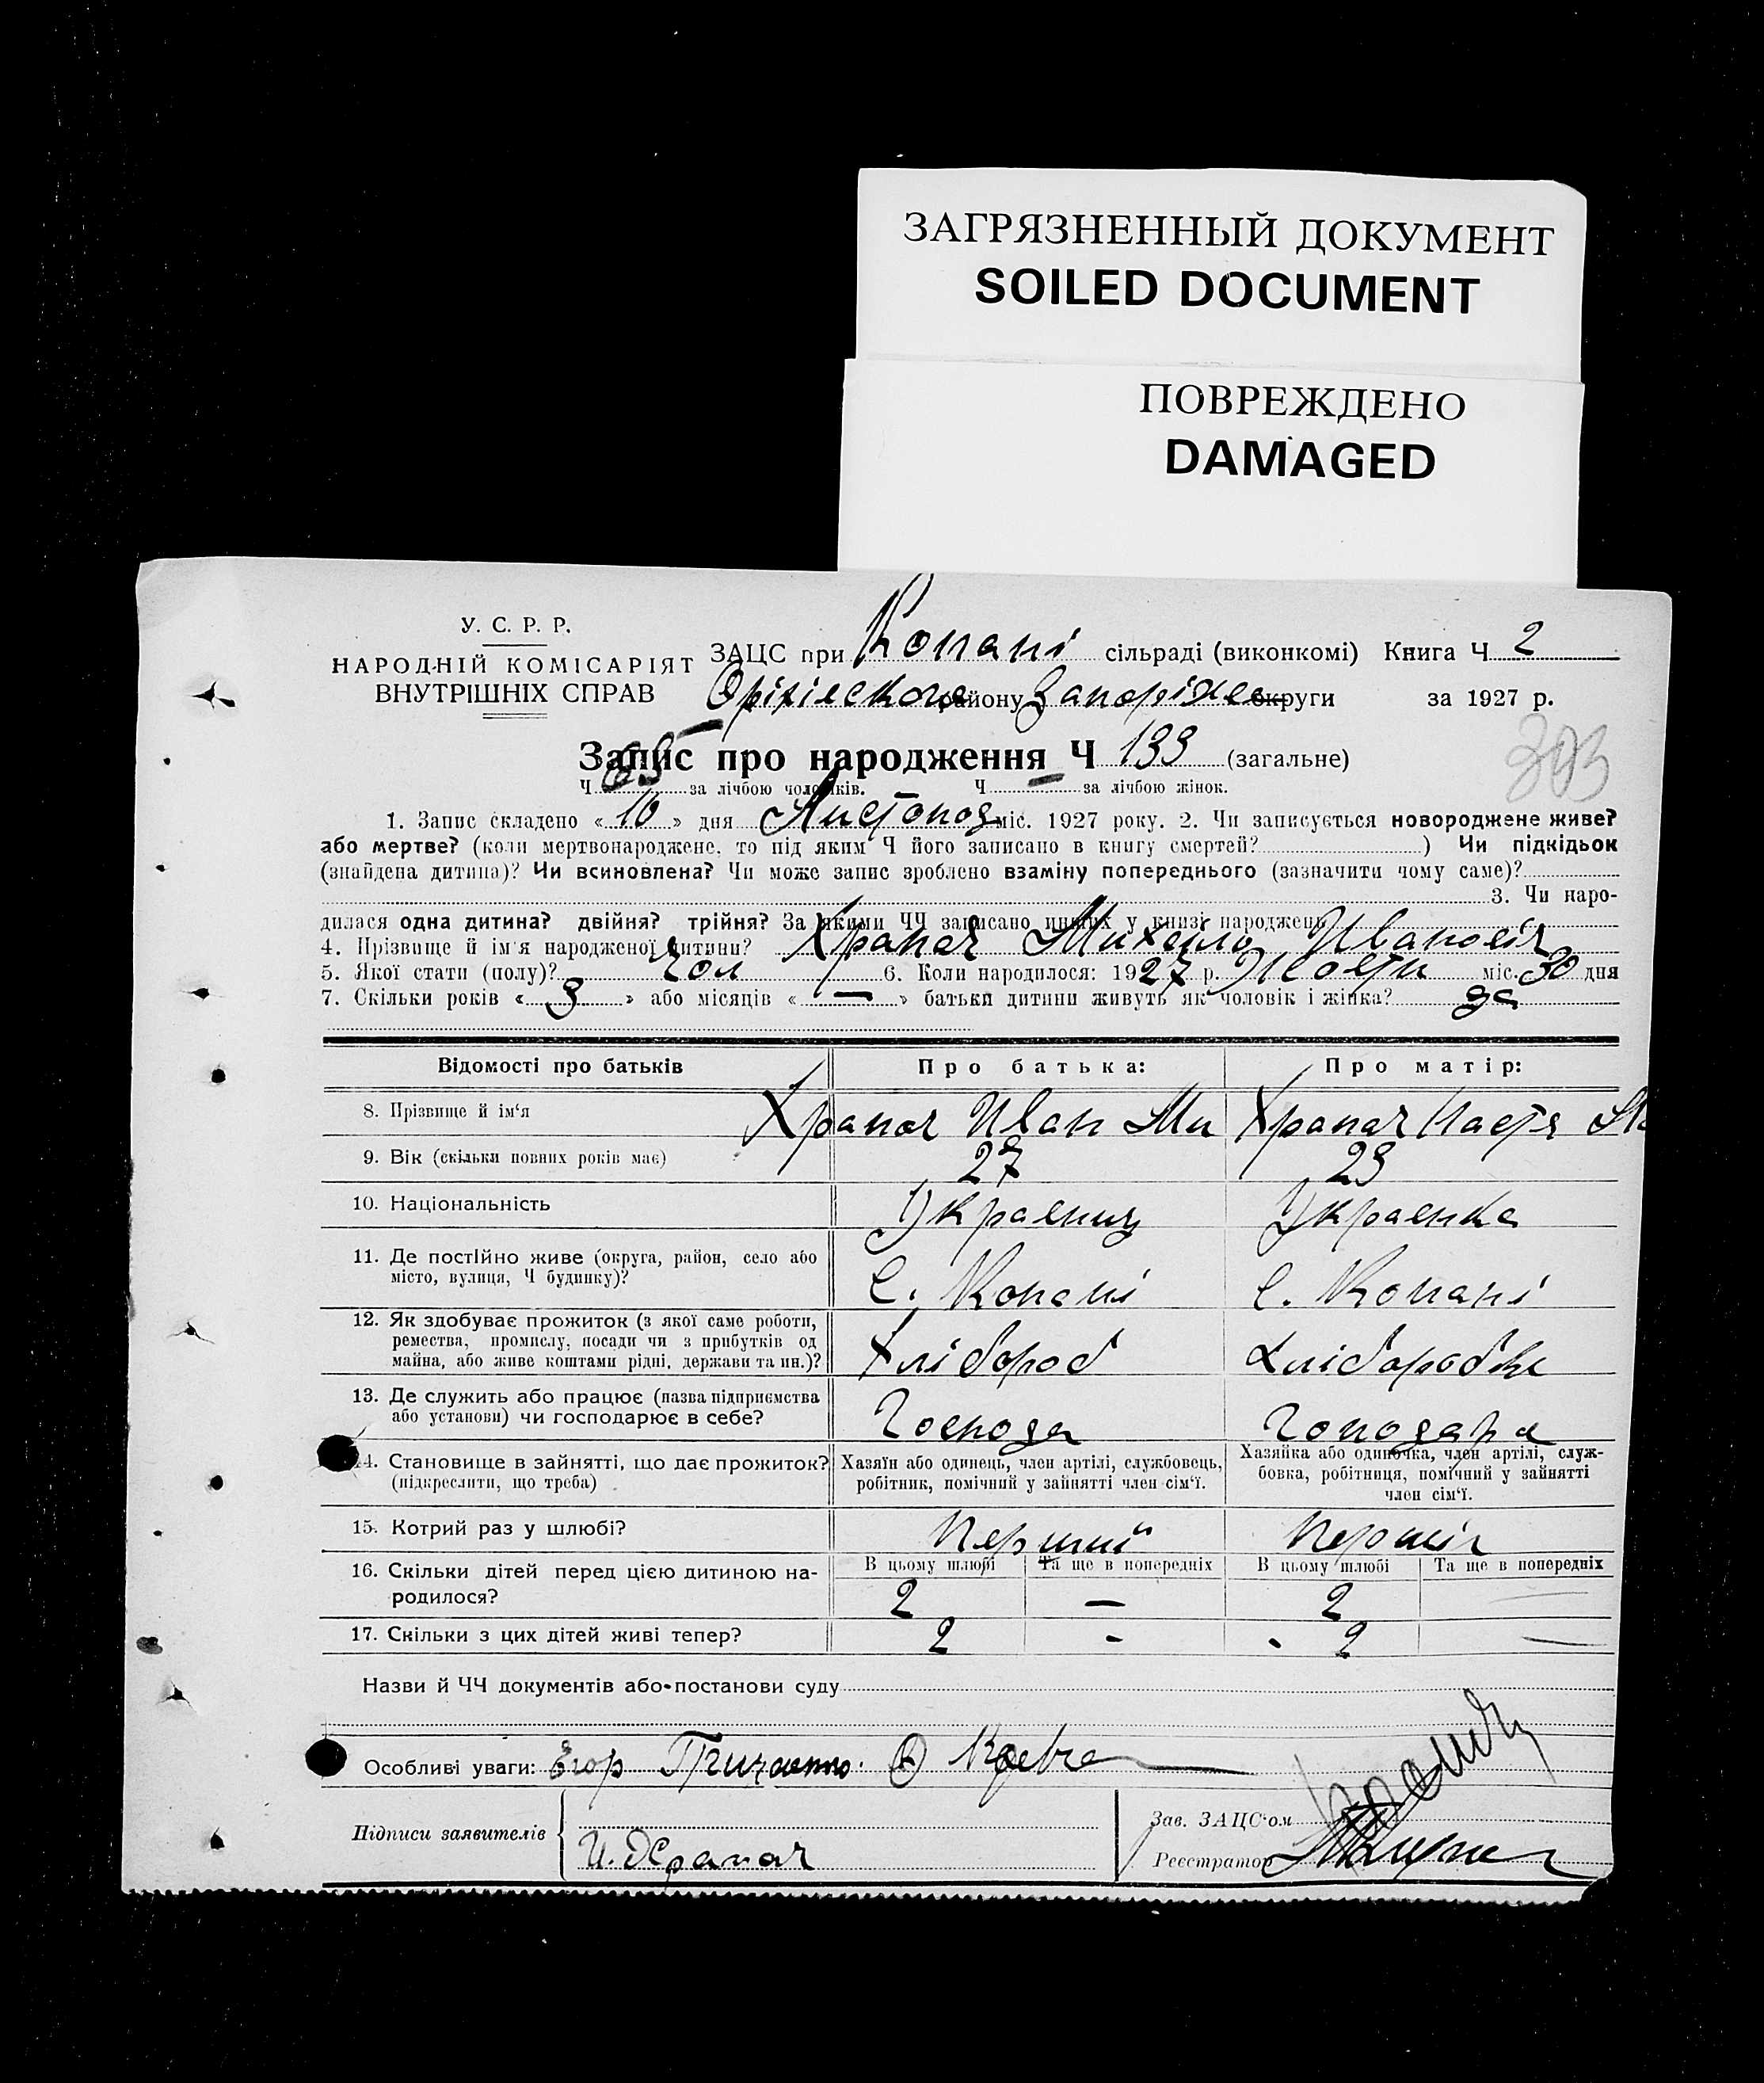 ЗАГРЯЗНЕННЫЙ ДОКУМЕНТ
SOILED DOCUMENT
ПОВРЕЖДЕНО
DAMAGED
У. С. Р. Р.
НАРОДНІЙ КОМІСАРІЯТ
ВНУТРІШНІХ СПРАВ
ЗАЦС при Копані сільраді (виконкомі) Книга Ч 2
району округи за 1927 р.
Запис про народження Ч 133 (загальне)
Ч за лічбою чоловіків. Ч — за лічбою жінок.
303
1. Запис складено « 16 » дня Листопад міс. 1927 року. 2. Чи записується новороджене живе?
або мертве? (коли мертвонароджене, то під яким Ч його записано в книгу смертей? ) Чи підкідьок
(знайдена дитина)? Чи всиновлена? Чи може запис зроблено взаміну попереднього (зазначити чому саме)?
3. Чи наро-
дилася одна дитина? двійня? трійня? За якими ЧЧ записано инших у книзі народжень
4. Прізвище й ім'я народженої дитини? Храпач Михайло Иванович
5. Якої стати (полу)? чол 6. Коли народилося: 1927 р. Жовтн міс. 30 дня
7. Скільки років « 3 » або місяців « — » батьки дитини живуть як чоловік і жінка? да
Відомості про батьків Про батька: Про матір:
8. Прізвище й ім'я Храпач Иван Ми Храпач Настя
9. Вік (скільки повних років має) 27 23
10. Національність Украениц Украенка
11. Де постійно живе (округа, район, село або
місто, вулиця, Ч будинку)? С. Копані С. Копані
12. Як здобуває прожиток (з якої саме роботи,
ремества, промислу, посади чи з прибутків од
майна, або живе коштами рідні, держави та ин.)? Хлібороб Хліборобка
13. Де служить або працює (назва підприємства
або установи) чи господарює в себе? Господа Гоподарх
14. Становище в зайнятті, що дає прожиток?
(підкреслити, що треба)
Хазяїн або одинець, член артілі, службовець,
робітник, помічний у зайнятті член сім'ї.
Хазяйка або одиночка, член артілі, служ-
бовка, робітниця, помічний у зайнятті
член сім'ї.
15. Котрий раз у шлюбі? Перший
16. Скільки дітей перед цією дитиною на-
родилося?
В цьому шлюбі Та ще в попередніх В цьому шлюбі Та ще в попередніх
2 — 2 —
17. Скільки з цих дітей живі тепер? 2 - 2 —
Назви й ЧЧ документів або постанови суду
Особливі уваги: Егор
Підписи заявителів И. Храпач
Зав. ЗАЦС'ом
Реєстратор